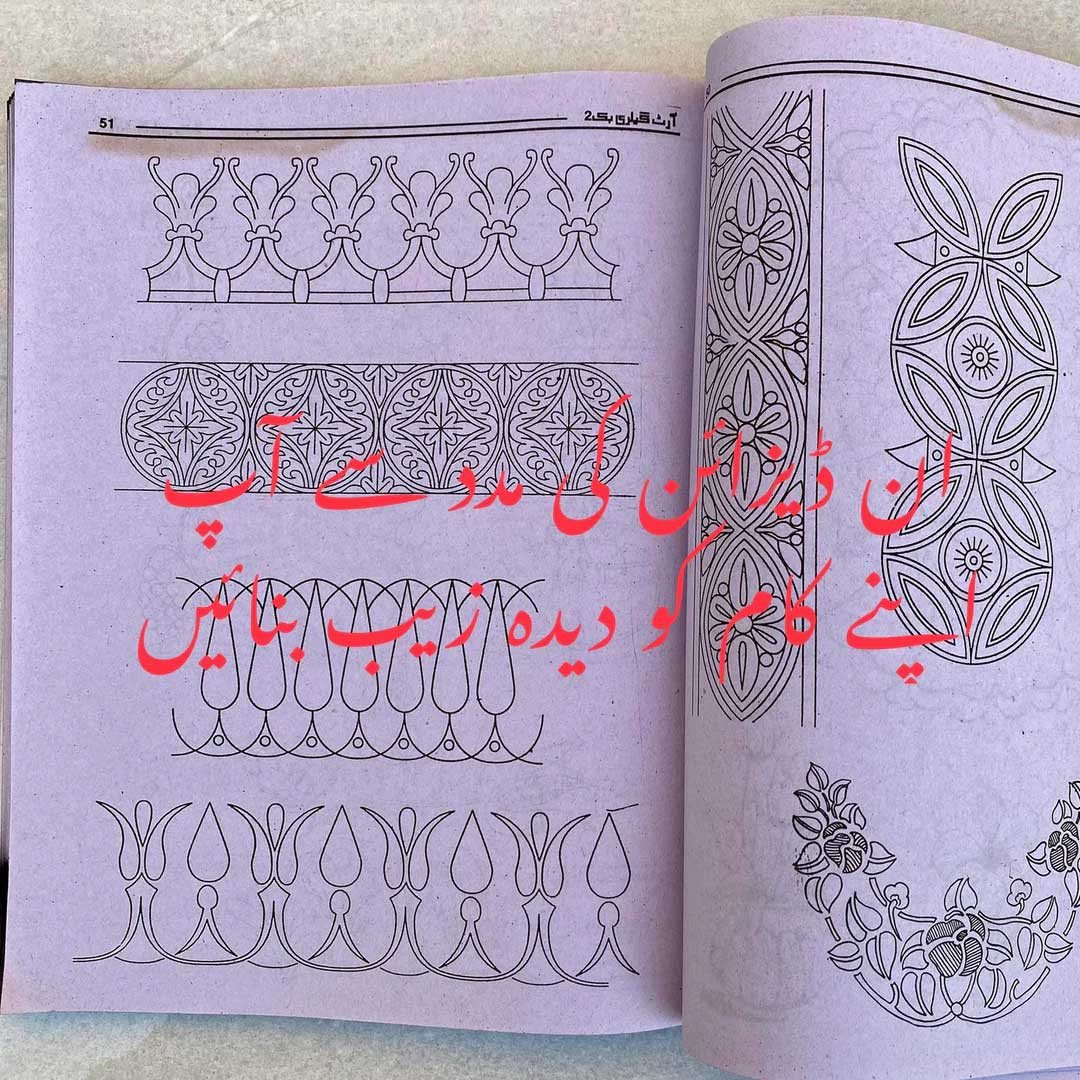 51
آرٹ گیلری بک2
ان ڈیزائن کی مدد سے آپ
اپنے کام کو دیدہ زیب بنائیں